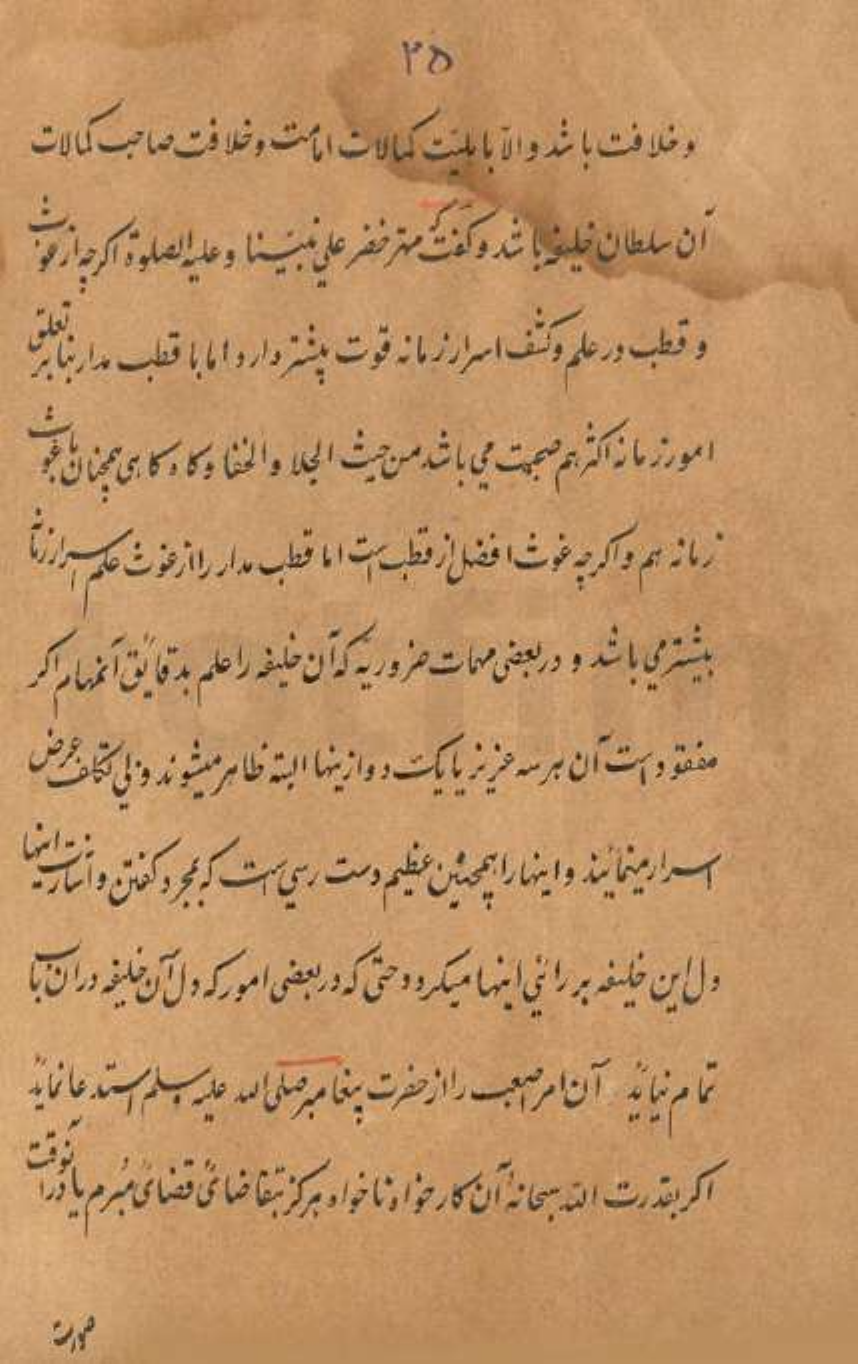 ۳۵
و خلافت باشد و الا بابلیّت کمالات امامت و خلافت صاحب کمالات
آن سلطان خلیفه باشد و گفت که مهتر خضر علی نبیّنا و علیه الصلوة اکرچه از غوث
و قطب در علم و کشف اسرار زمانه قوت بیشتر دارد اما با قطب مدار بنابر تعلق
امور زمانه اکثر هم صحبت می باشد من حیث الجلا و الخفا و کاه کاهی همچنان با غوث
زمانه هم و اکرچه غوث افضل از قطب است اما قطب مدار را از غوث علم اسرار زمانه
بیشتری باشد و در بعضی مهمات ضروریه که آن خلیفه را علم بدقایق آنمهام اکر
مفقود است آن هر سه عزیز یا یک دو ازینها البته ظاهر میشوند و بی تکلف عرض
اسرار مینمائیند و اینها را همچنین عظیم دست رسی است که بمجرد کفتن و اشارت اینها
دل این خلیفه بر رائی اینها میکردد حتی که در بعضی امور که دل آن خلیفه دران باب
تمام نیاید آن امر اصعب را از حضرت پیغامبر صلی الله علیه وسلم استدعا نماید
اکر بقدرت الله سبحانه آن کار خواه ناخواه هرکز بتقاضائ قضائ مبرم یا در آنوقت